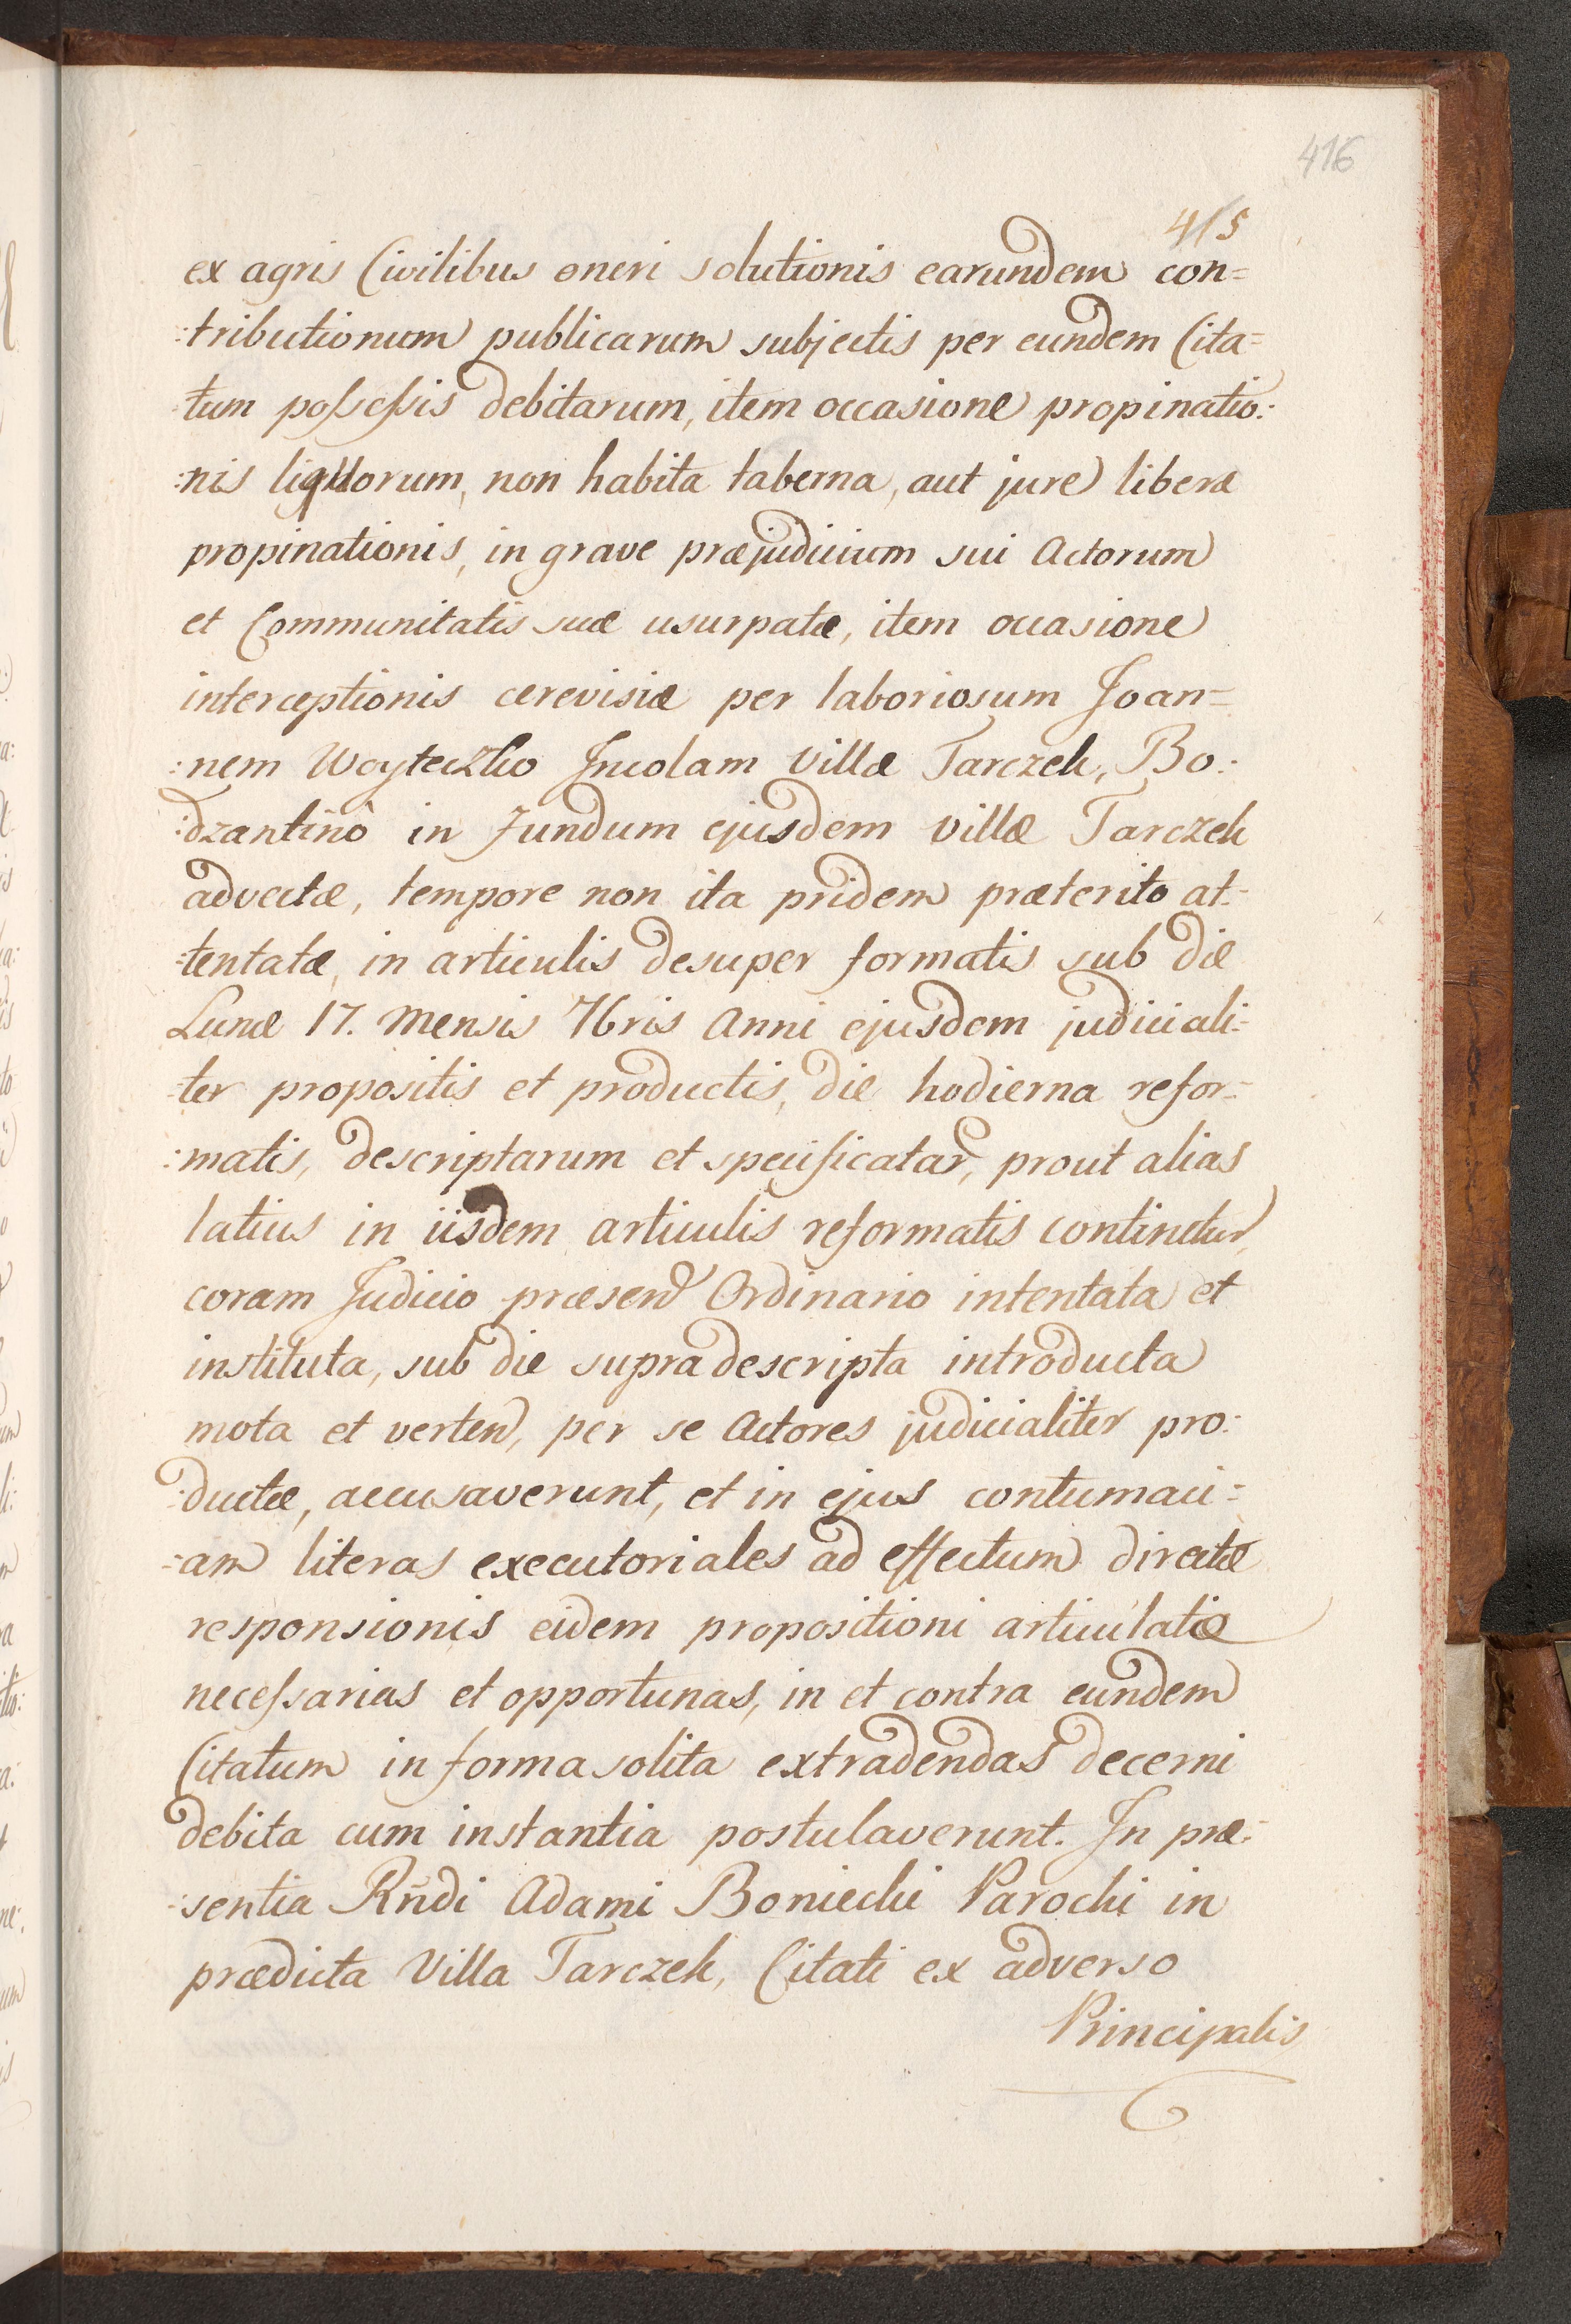 416
415
ex agris Civilibus oneri solutionis earundem con=
:tributionum publicarum subjectis per eundem Cita=
:tum poſseſsis debitarum, item occasione propinatio:
:nis liquorum, non habita taberna, aut jure liberæ
propinationis, in grave præjudicium sui Actorum
et Communitatis suæ usurpatæ, item occasione
interceptionis cerevisiæ per laboriosum Joan=
:nem Woyteczko Incolam Villæ Tarczek, Bo:
:dzantinô in fundum ejusdem villæ Tarczek
advectæ, tempore non ita pridem præterito at:
:tentatæ, in articulis desuper formatis sub die
Lunæ 17. Mensis 7bris Anni ejusdem judiciali:
:ter propositis et productis, die hodierna refor:
:matis, descriptarum et specificatar, prout alias
latius in iisdem articulis reformatis continetur,
coram Judicio præsen Ordinario intentata et
instituta, sub die supradescripta introducta
mota et verten, per se Actores judicialiter pro:
:ductæ, accusaverunt, et in ejus contumaci:
:am literas executoriales ad effectum directæ
responsionis eidem propositioni articulatæ
neceſsarias et opportunas, in et contra eundem
Citatum in forma solita extradendas decerni
debita cum instantia postulaverunt. In præ:
:sentia Rndi Adami Boniecki Parochi in
prædicta Villa Tarczek, Citati ex adverso
Principalis